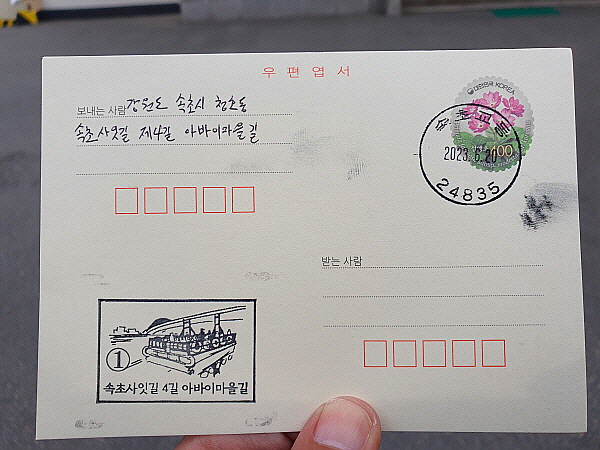 우편엽서
보내는 사람 강원도 속초시 청호동
속초사잇길 제4길 아바이마을길
대한민국 KOREA
400
속초교동
2023. 6. 20
24835
받는 사람
1
속초사잇길 4길 아바이마을길